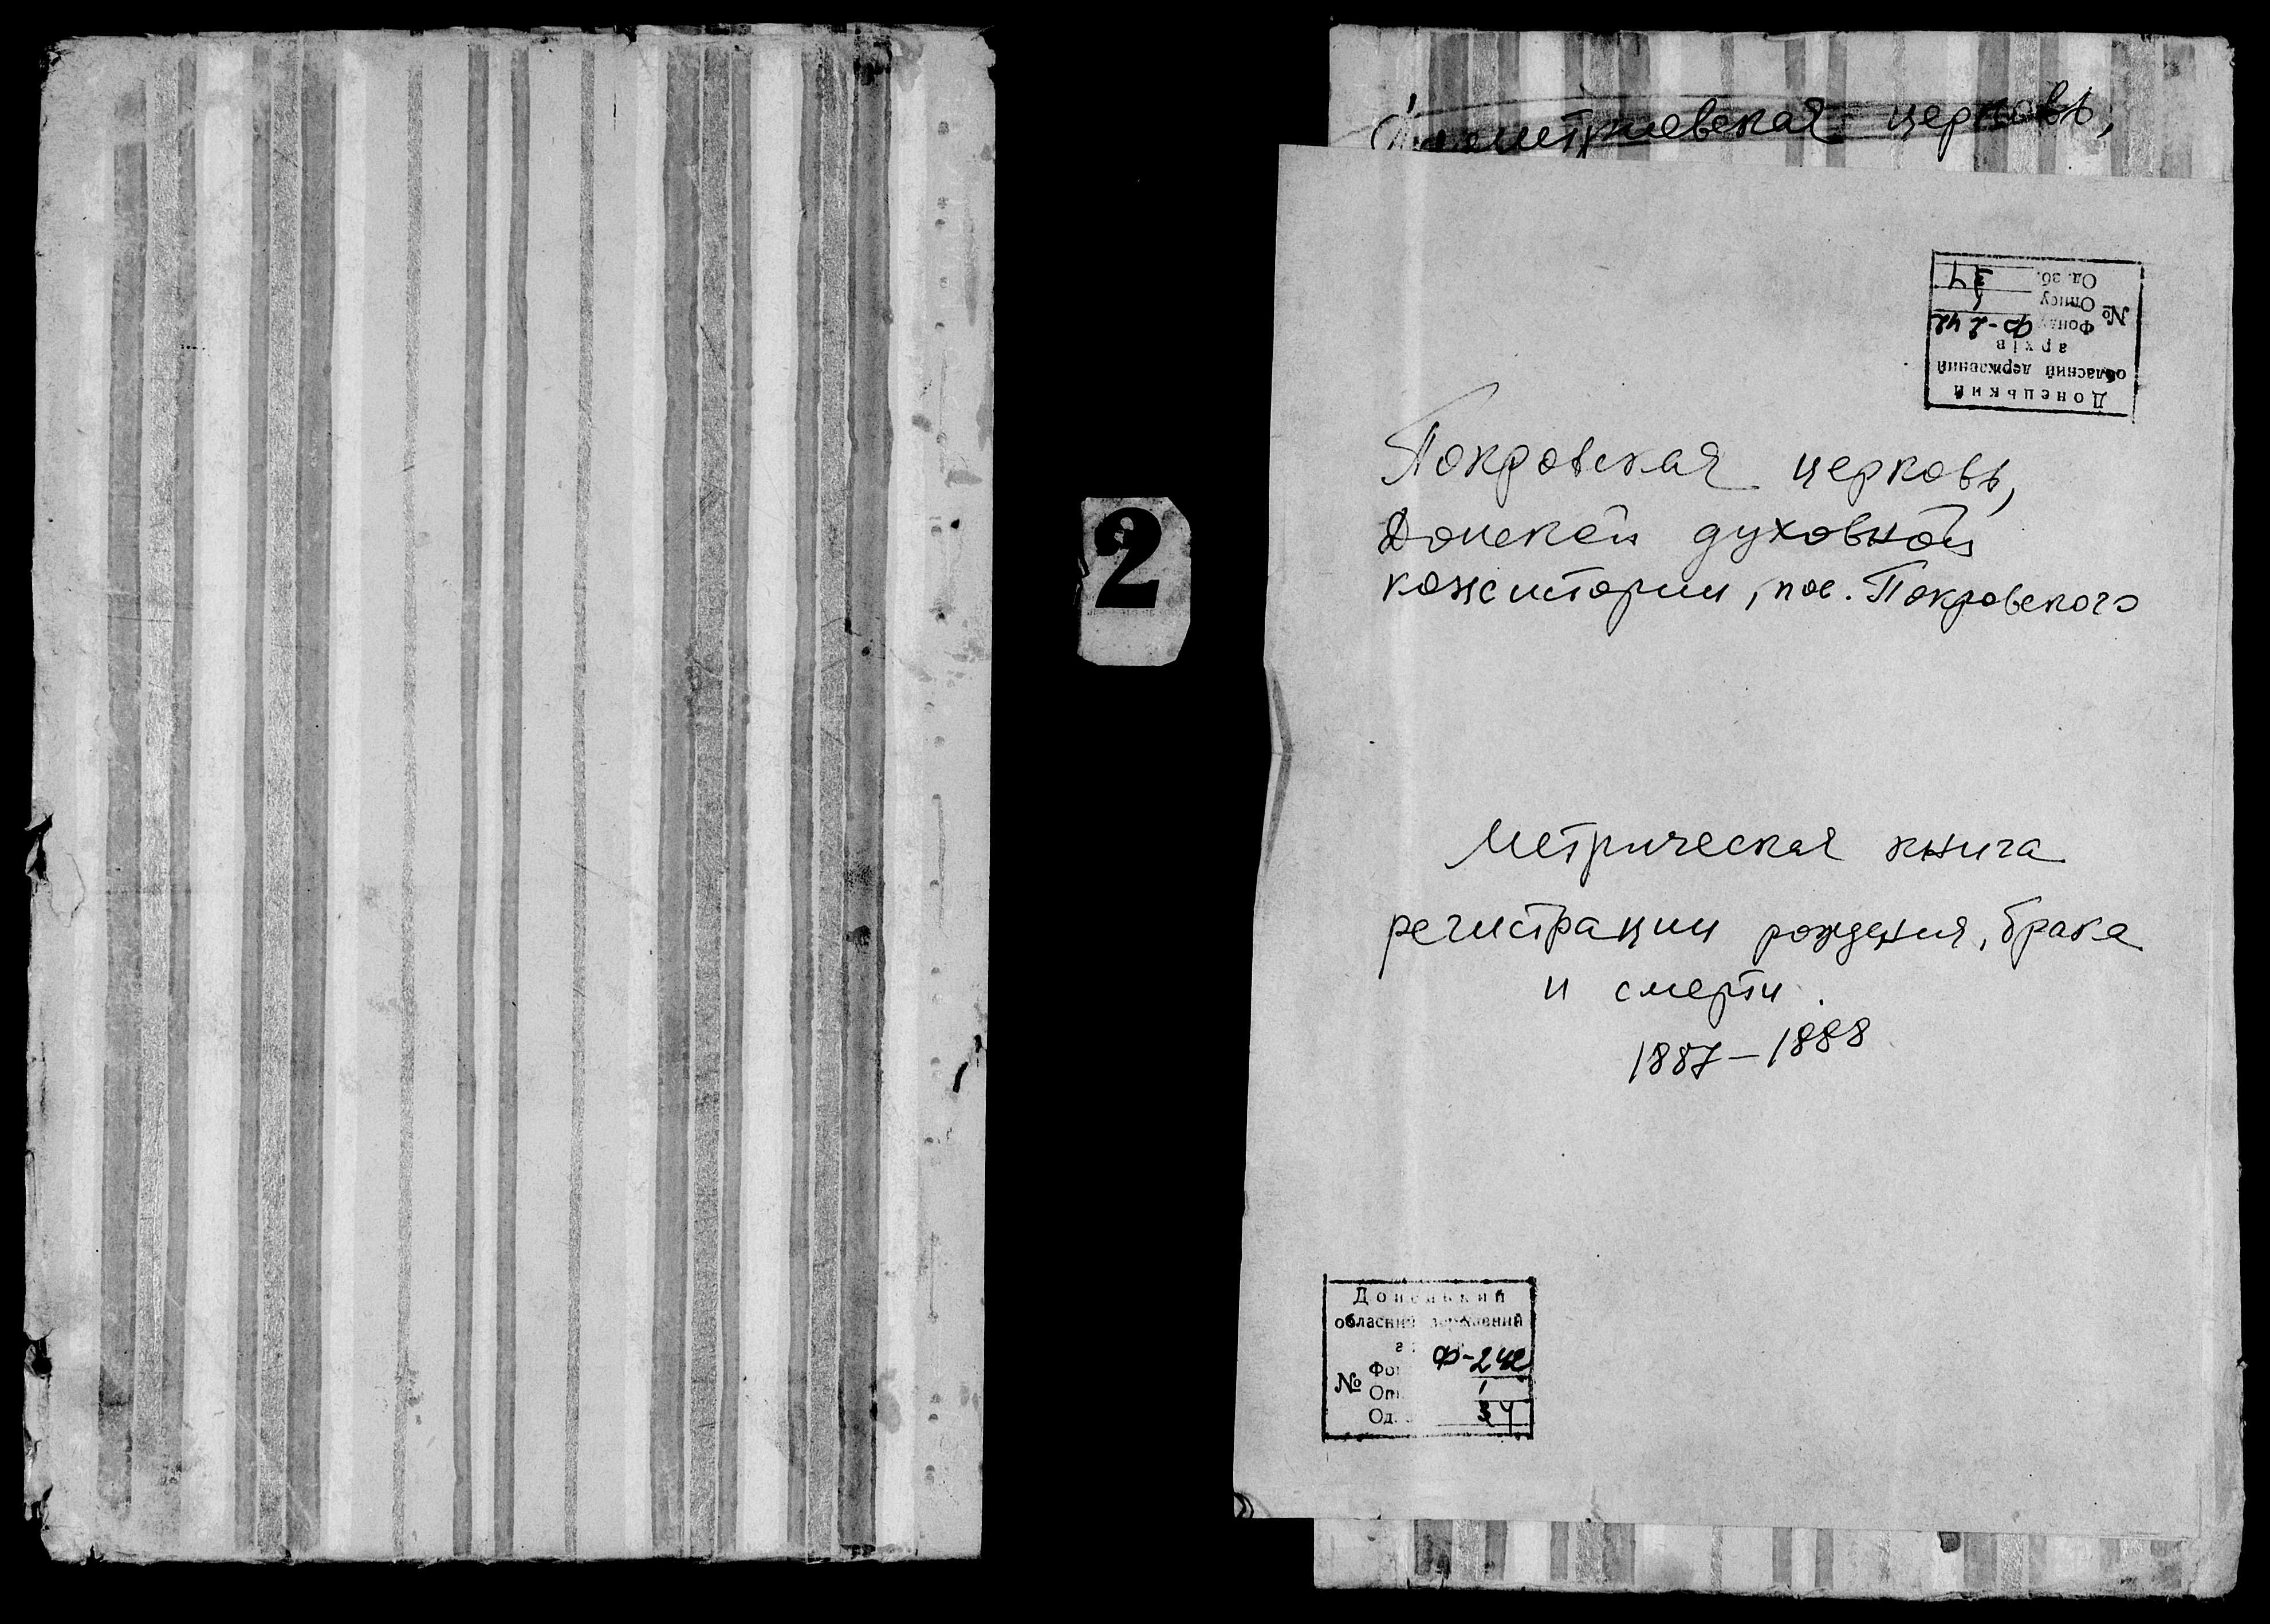 Дмитриевская церковь,
Донецький
обласний державний
архів
№ Фонду Ф-242
Опису 1
Од. зб. 34
Покровская церковь,
Донской духовной
консистории, пос. Покровского
2
Метрическая книга
регистрации рождения, брака
и смерти.
1887–1888
Донецький
обласний державний
№ Ф-242
1
Од. 34